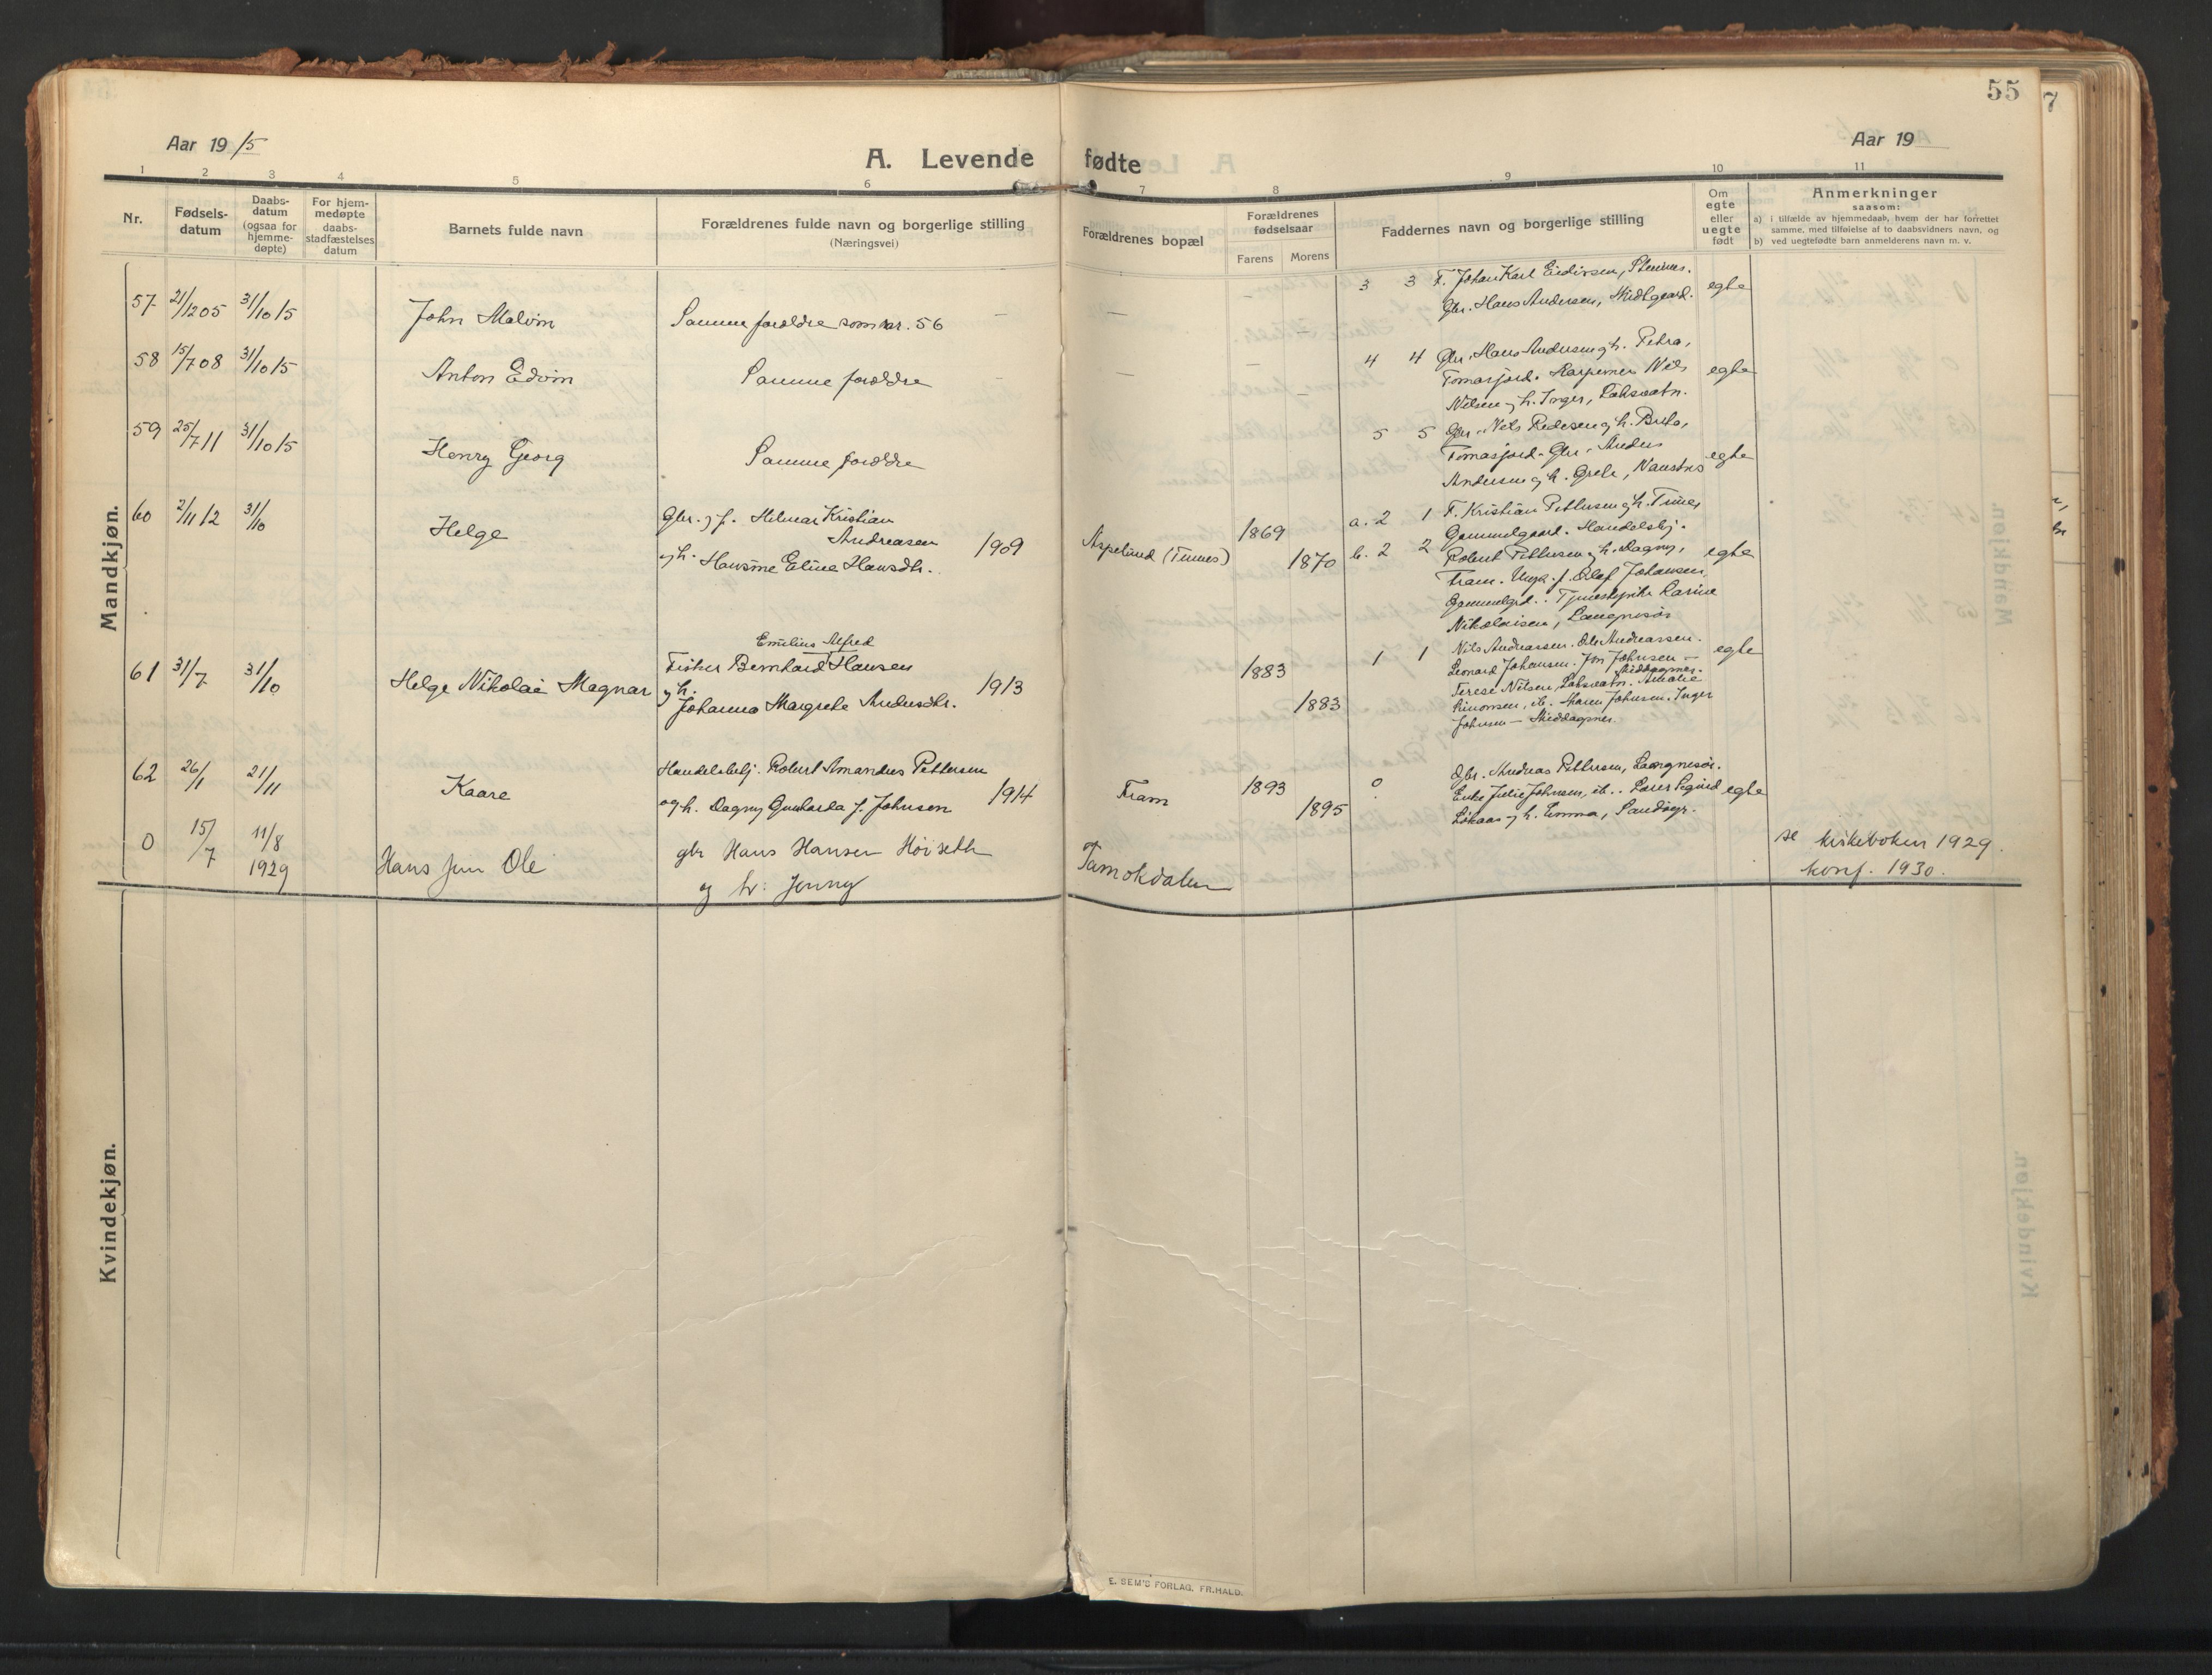 55
7
Aar 19 15
Aar 19
A. Levende fødte
1 2 3 4 5 6 7 8 9 10 11
Nr.
Fødsels-
datum
Daabs-
datum
(ogsaa for
hjemme-
døpte)
For hjem-
medøpte
daabs-
stadfæstelses
datum
Barnets fulde navn
Forældrenes fulde navn og borgerlige stilling
(Næringsvei)
Forældrenes bopæl
Forældrenes
fødselsaar
Farens Morens
Faddernes navn og borgerlige stilling
Om
egte
eller
uegte
født
Anmerkninger
saasom:
a) i tilfælde av hjemmedaab, hvem der har forrettet
samme, med tilføielse af to daabsvidners navn, og
b) ved uegtefødte barn anmelderens navn m. v.
Mandkjøn.
57 21/12 05 31/10 15 John Malvin Samme forældre som nr. 56 — — — 3 3 F. Johan Karl Eidissen, Stennes. egte
Gbr. Hans Andersen, Midtgaard.
58 15/7 08 31/10 15 Anton Edvin Samme forældre — — — 4 4 Gbr. Hans Andersen og h. Petra,
Tomasjord. Kaspernes Nils egte
Nilsen og h. Inger, Laksvatn.
59 25/7 11 31/10 15 Henry Georg Samme forældre 5 5 Gbr. Nils Pedersen og h. Brita,
Tomasjord. Gbr. Anders egte
Andersen og h. Grete, Naustnes
60 2/11 12 31/10 Helge Gbr. og f. Helmer Kristian
Andreasen
og h. Hansine Eline Hansdtr. 1909 Aspelund (Tinnes) 1869 1870 a. 2 1 F. Kristian Pettersen og h. Trine,
b. 2 2 Gammelgaard. Handelsbtj.
Robert Pettersen og h. Dagny, egte
Fram. Ungk. f. Olaf Johansen,
Gammelgrd. Tjenestepike Kasine
Nikolaisen, Langnesør
61 31/7 31/10 Helge Nikolai Magnar Emilius Alfred
Fisker Bernhard Hansen
og h.
Johanna Margrete Andersdtr. 1913 1883 1883 1 1 Nils Andreassen. Ole Andreassen. egte
Leonard Johansen. Jon Johnsen —
Middagsnes.
Terese Nilsen, Laksvatn. Amalie
Simonsen, ib. Maren Johnsen. Inger
Johnsen — Middagsnes.
62 26/1 21/11 Kaare Handelsbetj. Robert Amandus Pettersen
og h. Dagny Gunharda f. Johnsen 1914 Fram 1893 1895 0 Gbr. Andreas Pettersen, Langnesør.
Enke Julie Johnsen, ib.. Lærer Sigurd egte
Løkaas og h. Emma, Sandøyr.
0 15/7 11/8 1929 Hans Jenn Ole gbr Hans Hansen Høiseth
og h: Jenny Tamokdalen se kirkeboken 1929.
konf. 1930.
Kvindekjøn.
E. SEM'S FORLAG, FR.HALD.